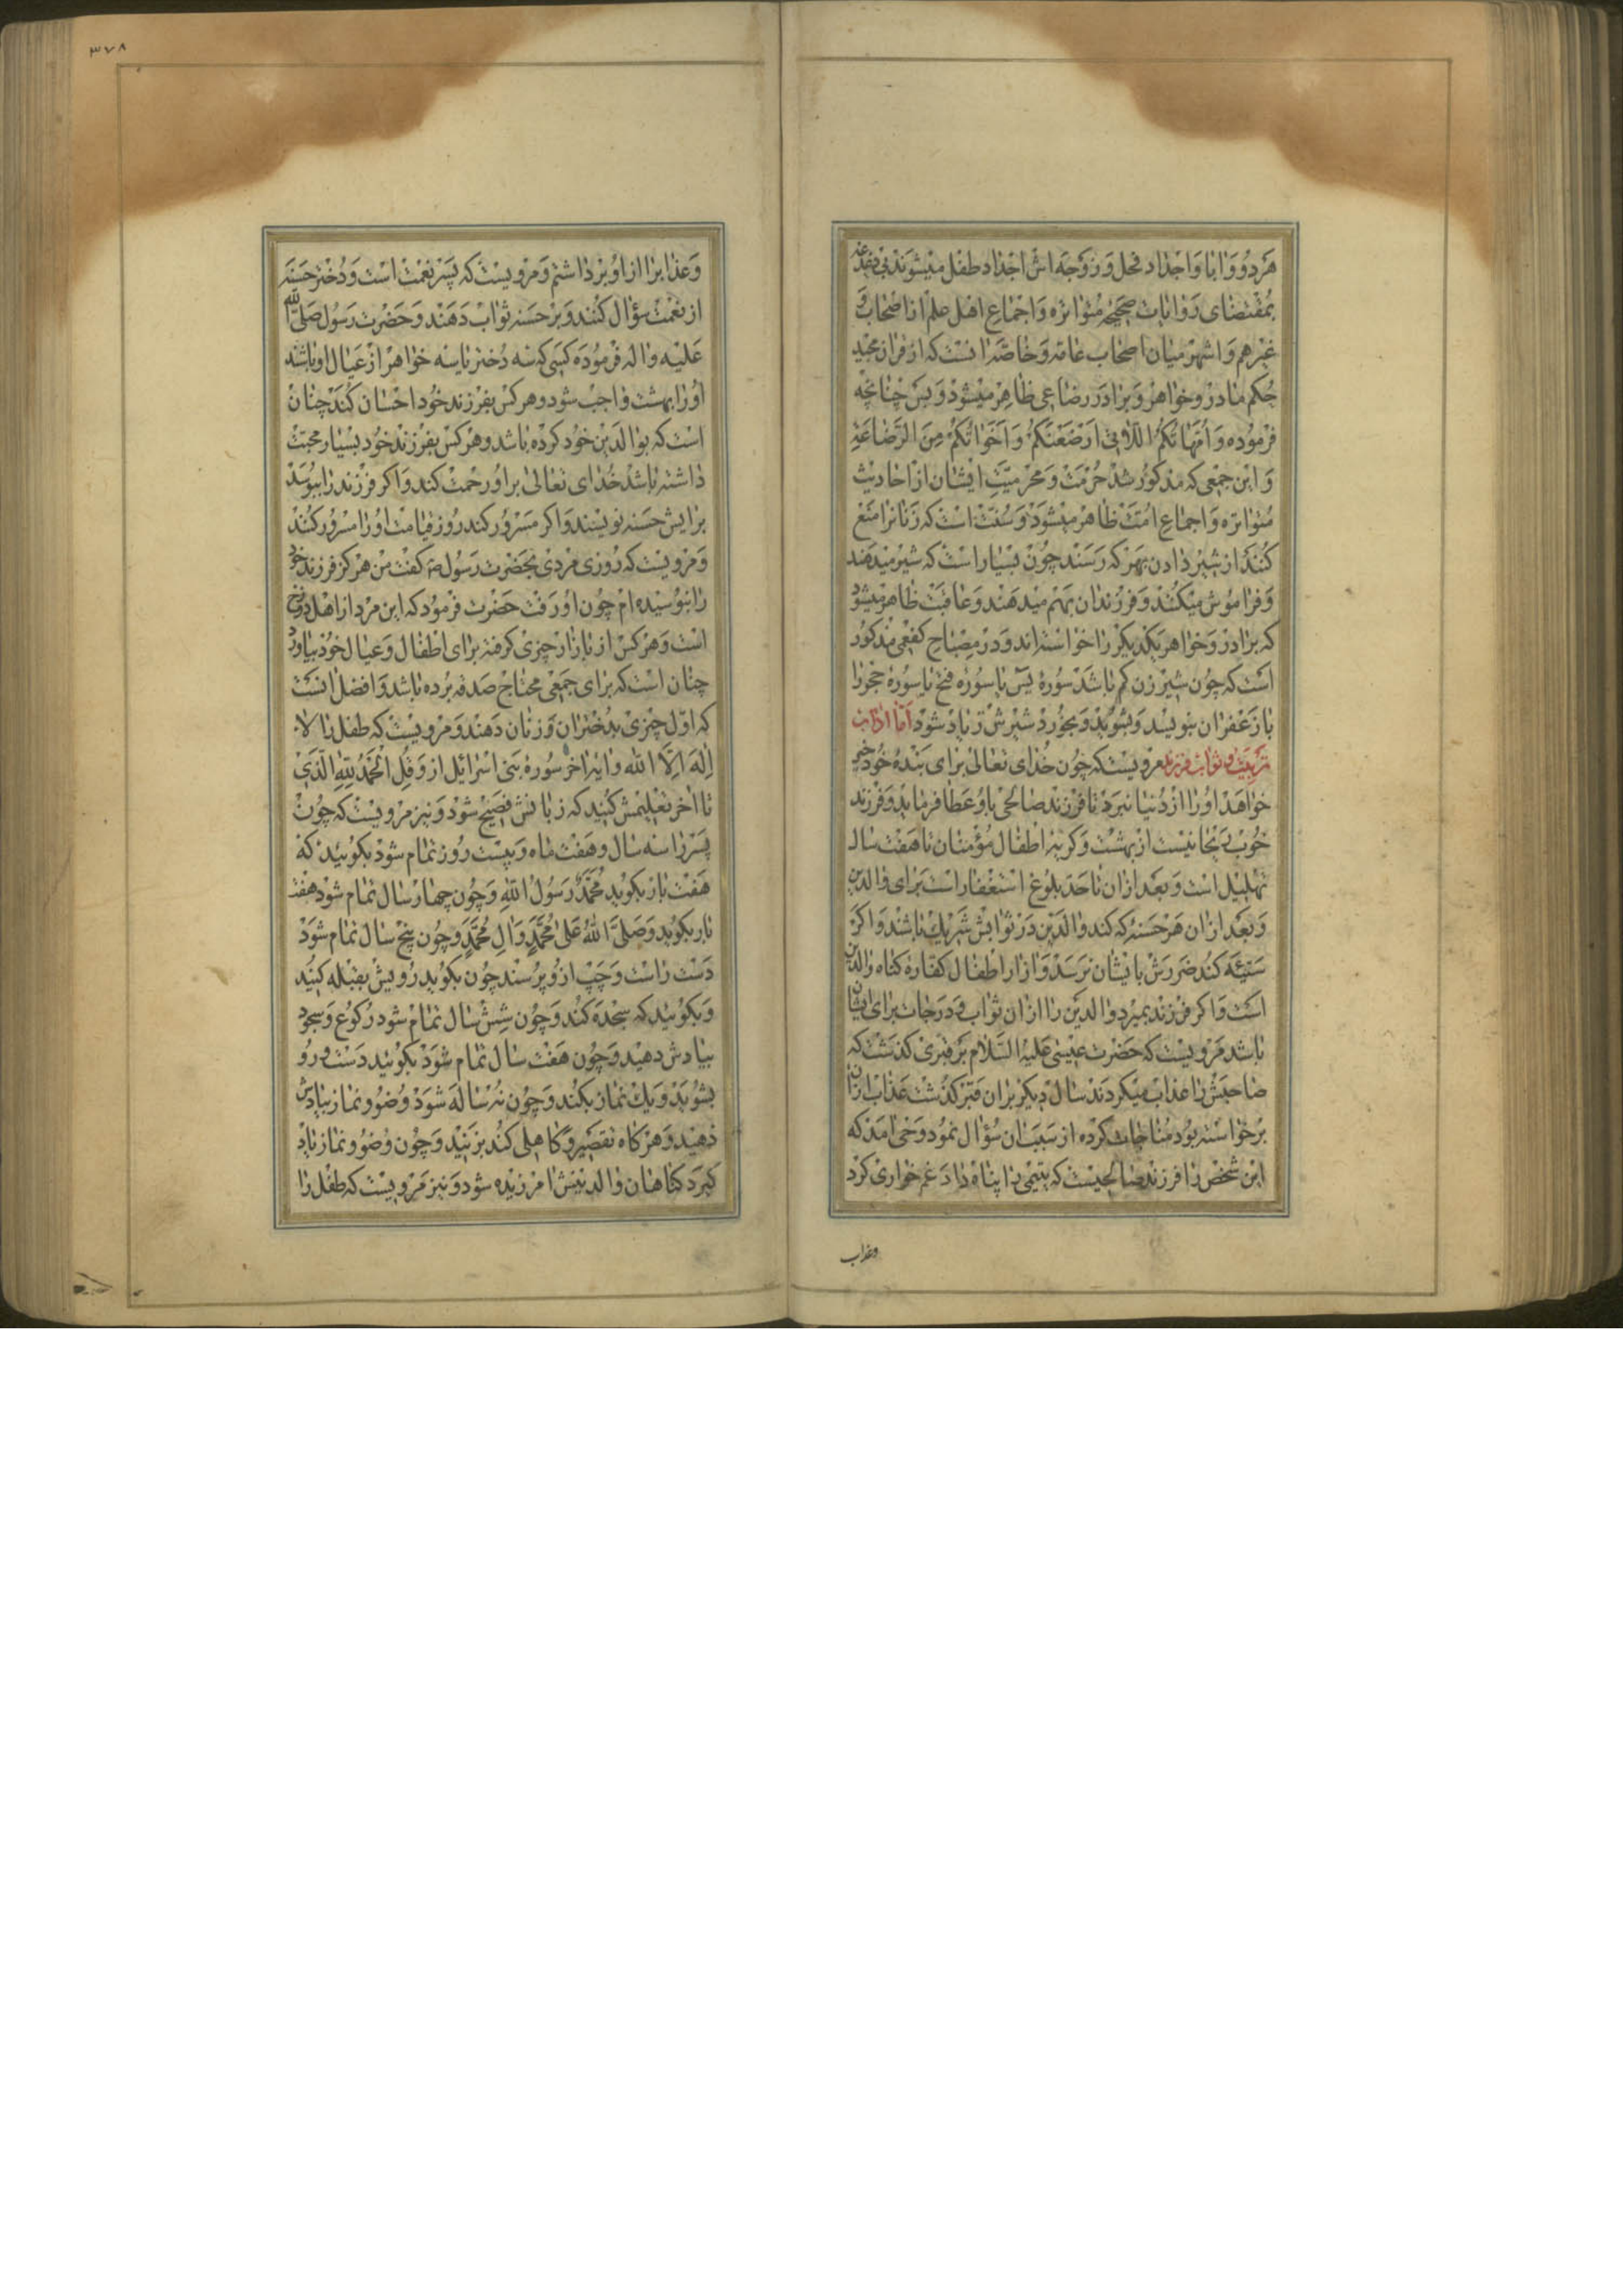 هردو و آبا و اجداد فحل و زوجه اش اجداد طفل میشوند بی دغدغه
بمقتضای روایات صحیحه متواتره و اجماع اهل علم از اصحاب و
غیرهم و اشهر میان اصحاب عامه و خاصه آنست که از قرآن مجید
حکم مادر و خواهر و برادر رضاعی ظاهر میشود و بس چنانچه
فرموده و امهاتکم اللاتی ارضعنکم و اخواتکم من الرضاعة
و این جمعی که مذکور شد حرمت و محرمیت ایشان از احادیث
متواتره و اجماع امت ظاهر میشود و سنت است که زنانرا منع
کنند از شیر دادن بهر که رسند چون بسیار است که شیر میدهند
و فراموش میکنند و فرزندان بهم میدهند و عاقبت ظاهر میشود
که برادر و خواهر یکدیگر را خواسته اند و در مصباح کفعمی مذکور
است که چون شیر زن کم باشد سوره یس یا سوره فتح یا سوره حجر را
بازعفران بنویسد و بشوید و بخورد شیرش زیاد شود اما اداب
تربیت و ثواب فرزند مرویست که چون خدای تعالی برای بنده خود خیر
خواهد او را از دنیا نبرد تا فرزند صالحی باو عطا فرماید و فرزند
خوب ریحانیست از بهشت و کریه اطفال مؤمنان تا هفت سال
تهلیل است و بعد از ان تا حد بلوغ استغفار است برای والدین
و بعد از ان هر حسنه که کند والدین در ثوابش شریک باشند و اکر
سیئه کند ضررش بایشان نرسد و ازار اطفال کفاره کناه والدین
است و اکر فرزند بمیرد والدین را از ان ثواب و درجات برای ایشان
باشد مرویست که حضرت عیسی علیه السلام بر قبری کذشت که
صاحبش را عذاب میکردند سال دیکر بران قبر کذشت عذاب از ان
برخواسته بود مناجات کرده از سبب ان سؤال نمود وحی امد که
این شخص را فرزند صالحیست که یتیمی را پناه داد و غم خواری کرد
وعذاب
۳۷۸
و عذابرا از او برداشتم و مرویست که پسر نعمت است و دختر حسنه
از نعمت سؤال کنند و بر حسنه ثواب دهند و حضرت رسول صلی الله
علیه واله فرموده کسی که سه دختر یا سه خواهر از عیال او باشد
او را بهشت واجب شود و هرکس بفرزند خود احسان کند چنان
است که بوالدین خود کرده باشد و هرکس بفرزند خود بسیار محبت
داشته باشد خدای تعالی بر او رحمت کند و اکر فرزند را ببوسد
برایش حسنه نویسند و اکر مسرور کند روز قیامت او را مسرور کنند
و مرویست که روزی مردی بحضرت رسول ص کفت من هرکز فرزند خود
را نبوسیده ام چون او رفت حضرت فرمود که این مرد از اهل دوزخ
است و هرکس از بازار چیزی کرفته برای اطفال و عیال خود بیاورد
چنان است که برای جمعی محتاج صدقه برده باشد و افضل انست
که اول چیزی بدختران و زنان دهند و مرویست که طفل را لا
اله الا الله و ایه اخر سوره بنی اسرائیل از و قل الحمد لله الذی
تا اخر تعلیمش کنید که زبانش فصیح شود و نیز مرویست که چون
پسر را سه سال و هفت ماه و بیست روز تمام شود بکوئید که
هفت بار بکوید محمد رسول الله و چون چهار سال تمام شود هفت
بار بکوید و صلی الله علی محمد وال محمد و چون پنج سال تمام شود
دست راست و چپ ازو پرسند چون بکوید رویش بقبله کنید
و بکوئید که سجده کند و چون شش سال تمام شود رکوع و سجود
بیادش دهید و چون هفت سال تمام شود بکوئید دست و رو
بشوید و یک نماز بکند و چون نه ساله شود وضو و نماز بیادش
دهید و هرکاه تقصیر و کاهلی کند بزنید و چون وضو و نماز یاد
کیرد کناهان والدینش امرزیده شود و نیز مرویست که طفل را